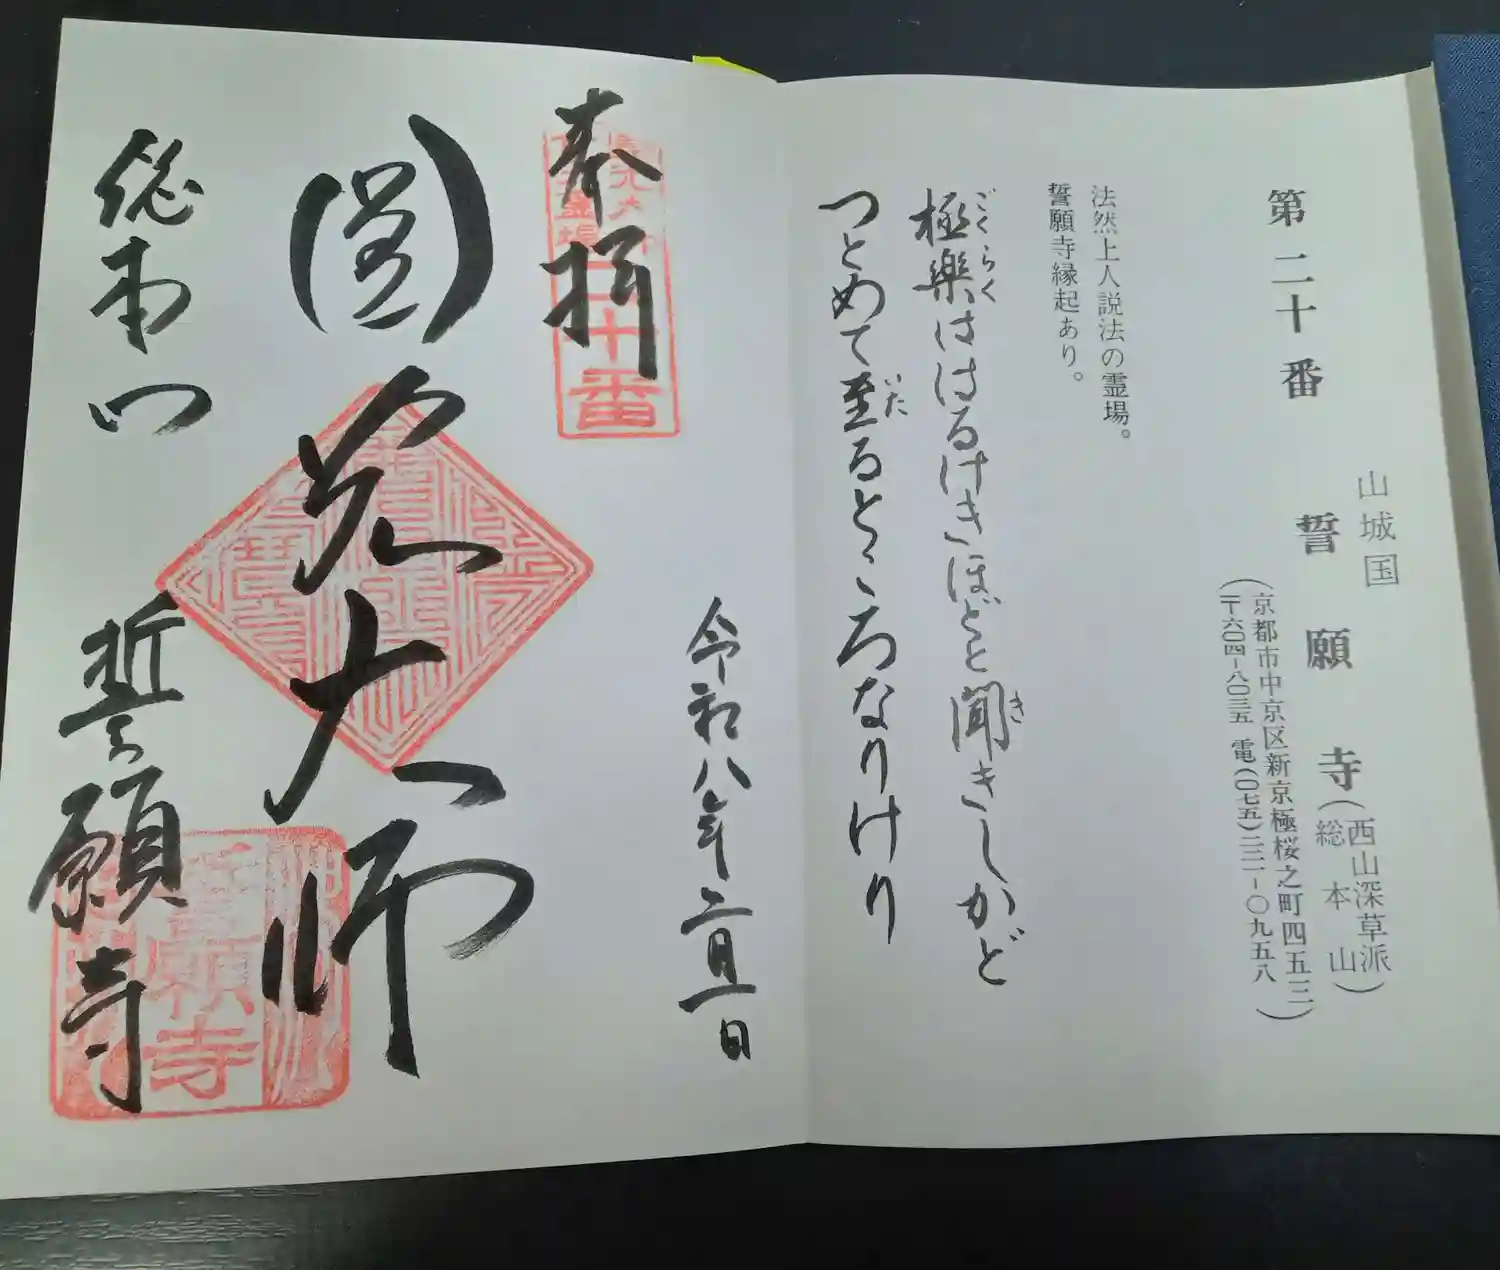 第二十番
山城国
誓願寺
(西山深草派
総本山)
(京都市中京区新京極桜之町四五三
〒六〇四-八〇三五 電(〇七五)二二一-〇九五八)
法然上人説法の霊場。
誓願寺縁起あり。
極楽ははるけきほどと聞きしかど
ごくらく
き
つとめて至るところなりけり
いた
奉拝
二十番
令和八年二月一日
圓光大師
総本山
誓願寺
誓願寺